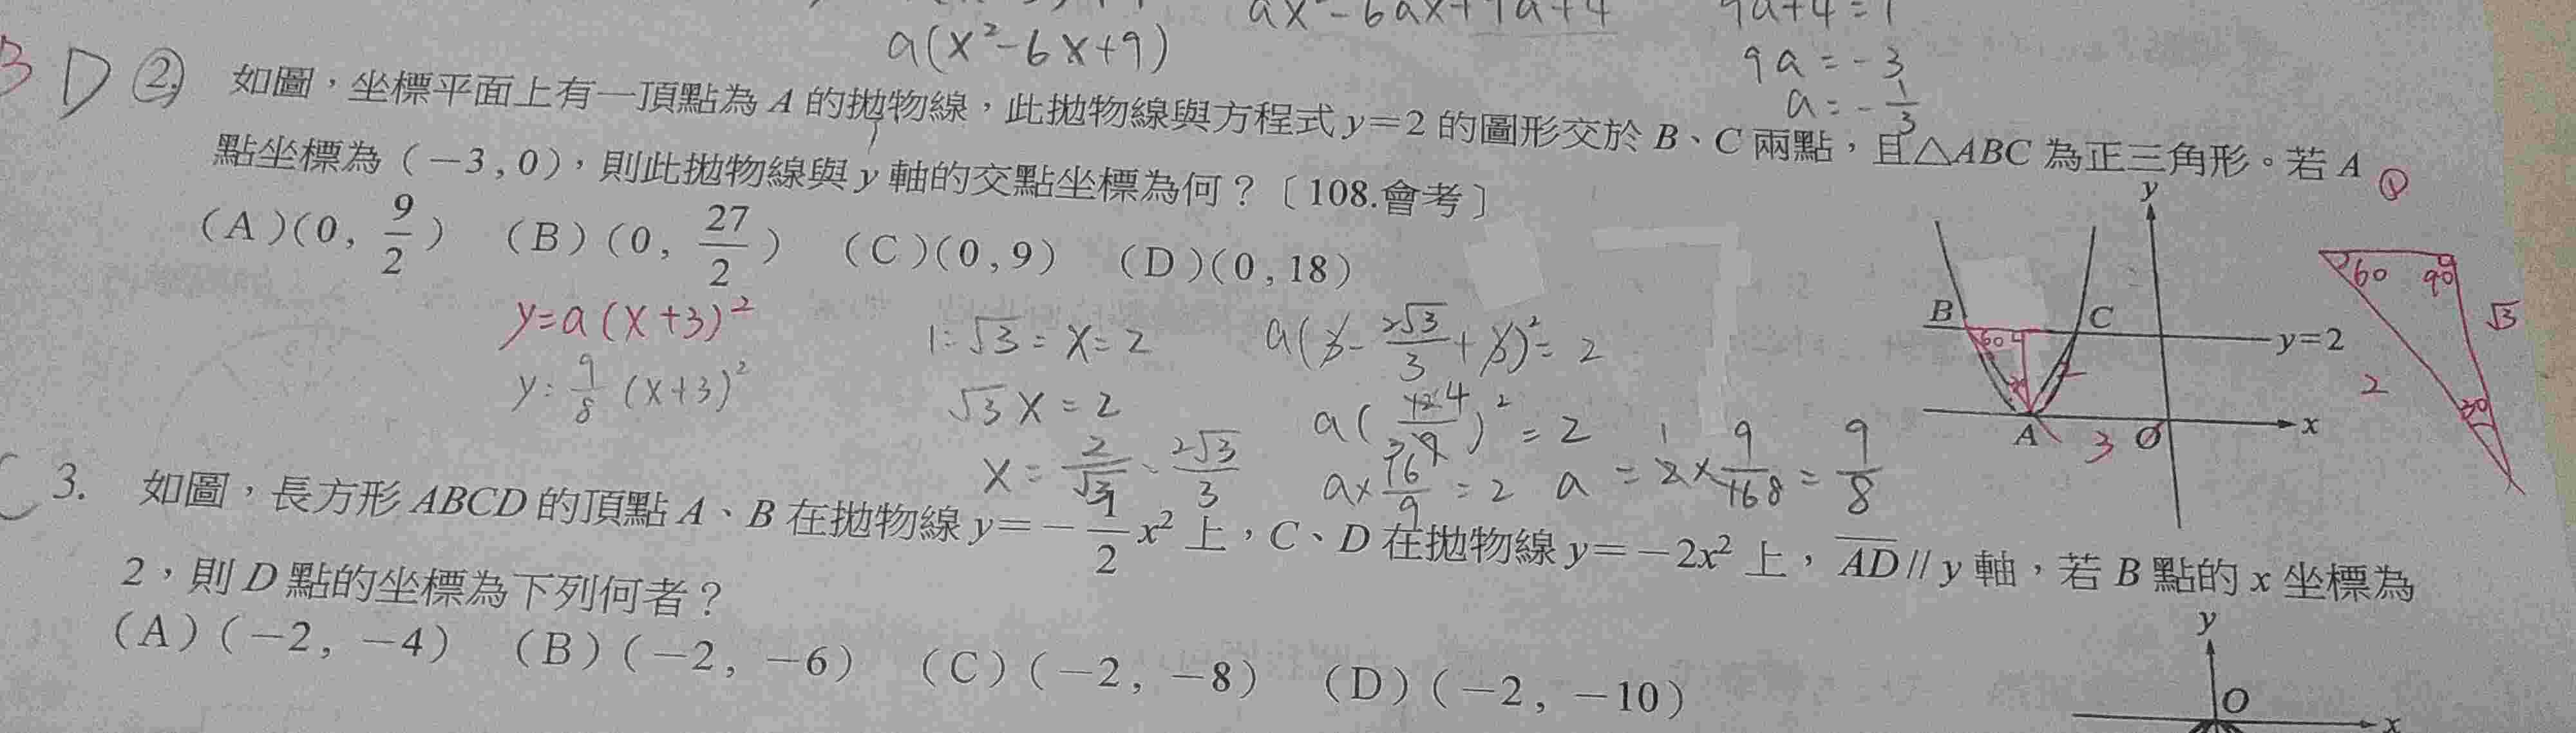 a(x²-6x+9)
ax²-6ax+9a+4
9a+4=1
9a=-3
a=-1/3
B D ②. 如圖，坐標平面上有一頂點為 A 的拋物線，此拋物線與方程式 y=2 的圖形交於 B、C 兩點，且△ABC 為正三角形。若 A
點坐標為（-3,0），則此拋物線與 y 軸的交點坐標為何？〔108.會考〕
(A)(0, 9/2) (B)(0, 27/2) (C)(0,9) (D)(0,18)
y=a(x+3)²
y=9/8(x+3)²
1:√3=x:2
√3x=2
x=2/√3、2√3/3
a(3-2√3/3+3)²=2
a×16/9=2 a=2×9/16 8=9/8
①
y
B
C
y=2
60
30
A
3
O
x
60
90
√3
2
30
C 3. 如圖，長方形 ABCD 的頂點 A、B 在拋物線 y=-1/2x² 上，C、D 在拋物線 y=-2x² 上，AD // y 軸，若 B 點的 x 坐標為
2，則 D 點的坐標為下列何者？
(A)(-2, -4) (B)(-2, -6) (C)(-2, -8) (D)(-2, -10)
y
O
x